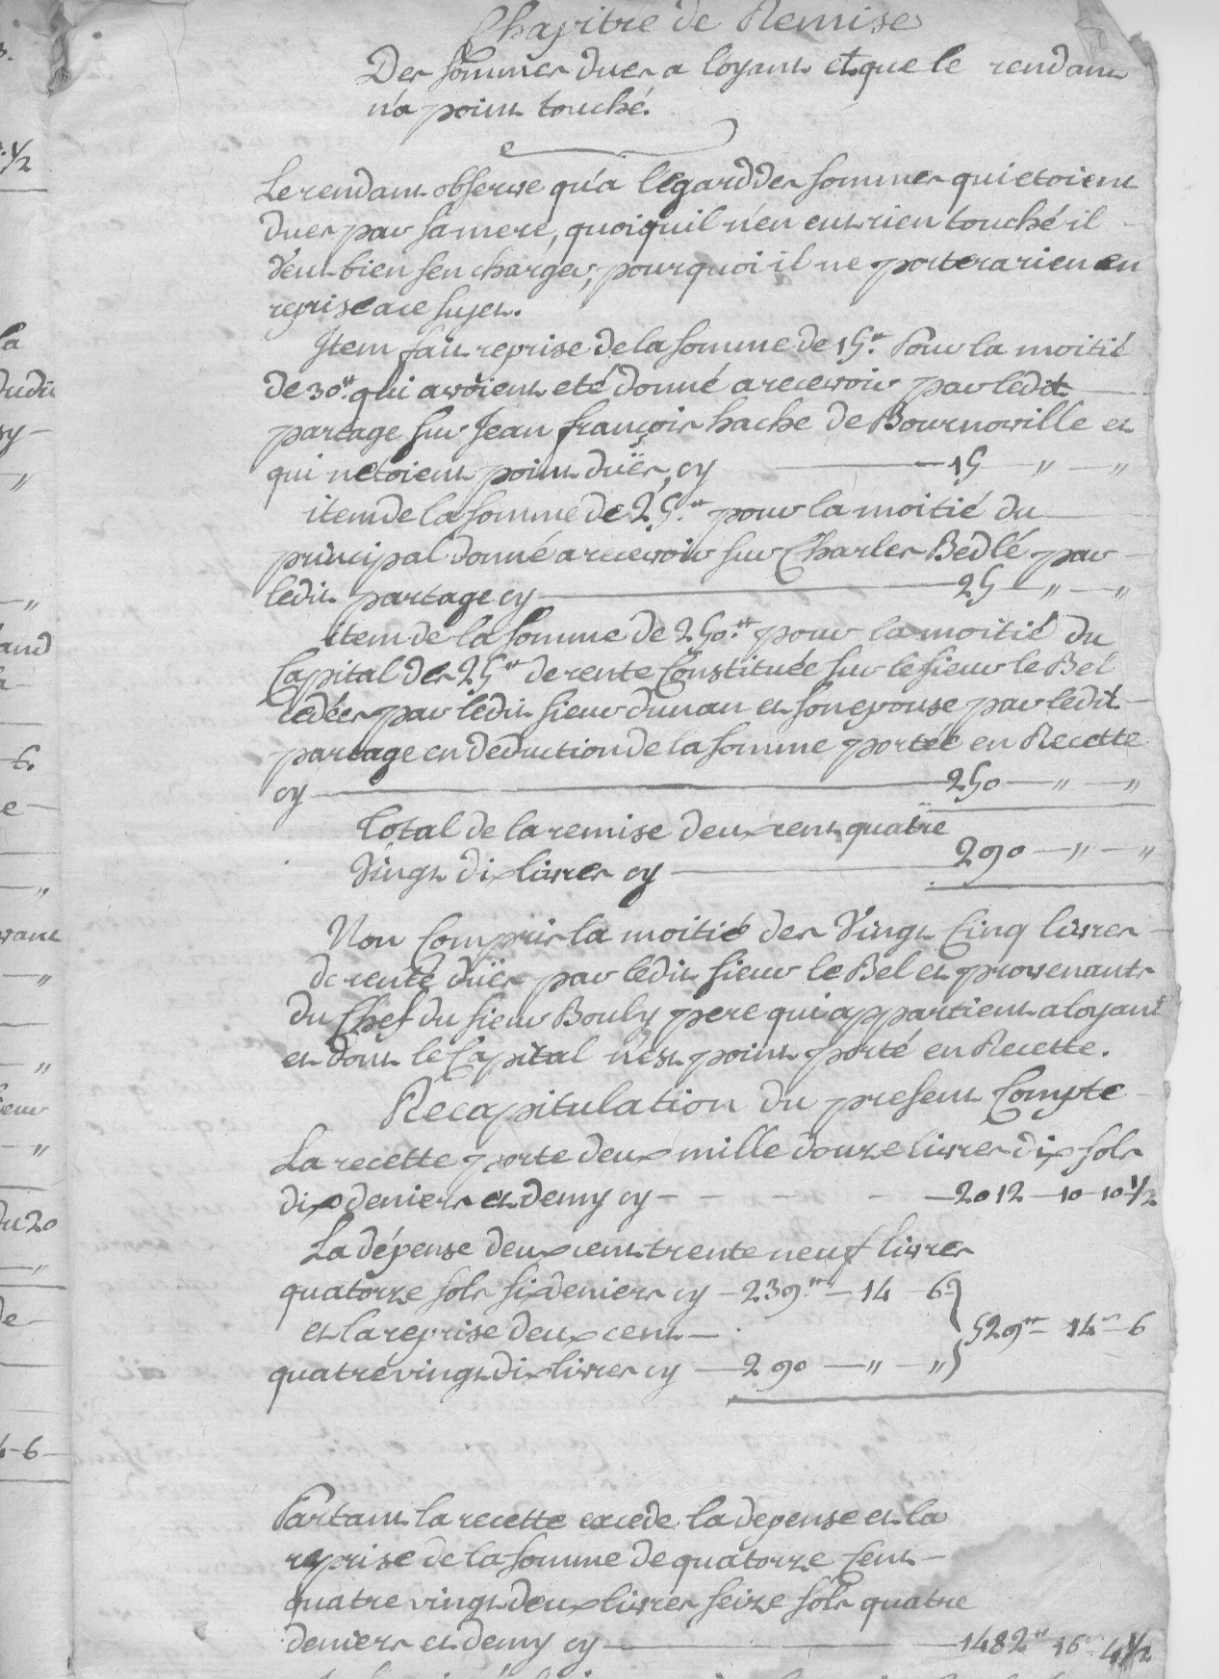 Chapitre de Remise
Des sommes dues a loyant et que le rendant
n'a point touché.
Le rendant observe qu'a legard des sommes qui etoient
dues par sa mere, quoiquil n'en eut rien touché il
veut bien sen charger, pourquoi il ne portera rien en
reprise a ce sujet.
Item fait reprise de la somme de 15.tt Pour la moitié
de 30.tt qui avoient eté donné a recevoir par ledit
partage sur Jean françois hache de Bournonville et
qui netoient point duës, cy — 15 — " — "
item de la somme de 25.tt pour la moitié du
principal donné a recevoir sur Charles Bedlé par
ledit partage cy — 25 — " — "
item de la somme de 250.tt pour la moitié du
Capital des 25tt de rente Constituée sur le sieur le Bel
cedées par ledit sieur dunan et son epouse par ledit
partage en deduction de la somme portée en Recette
cy — 250 — " — "
Total de la remise deux cent quatre
Vingt dix livres cy — 290 — " — "
Non Compris la moitié des Vingt Cinq livres
de rente duës par ledit sieur le Bel et provenants
du Chef du sieur Bouly pere qui appartient a loyant
et dont le Capital n'est point porté en Recette.
Recapitulation du present Compte
La recette porte deux mille douze livres dix sols
dix deniers et demy cy — 2012 — 10 — 10 1/2
La dépense deux cent trente neuf livres
quatorze sols six deniers cy — 239.tt — 14 — 6
et la reprise deux cent — 529tt — 14 — 6
quatre vingt dix livres cy — 290 — " — "
Partant la recette excede la depense et la
reprise de la somme de quatorze Cent
quatre vingt deux livres seize sols quatre
deniers et demy cy — 1482tt 16 — 4 1/2